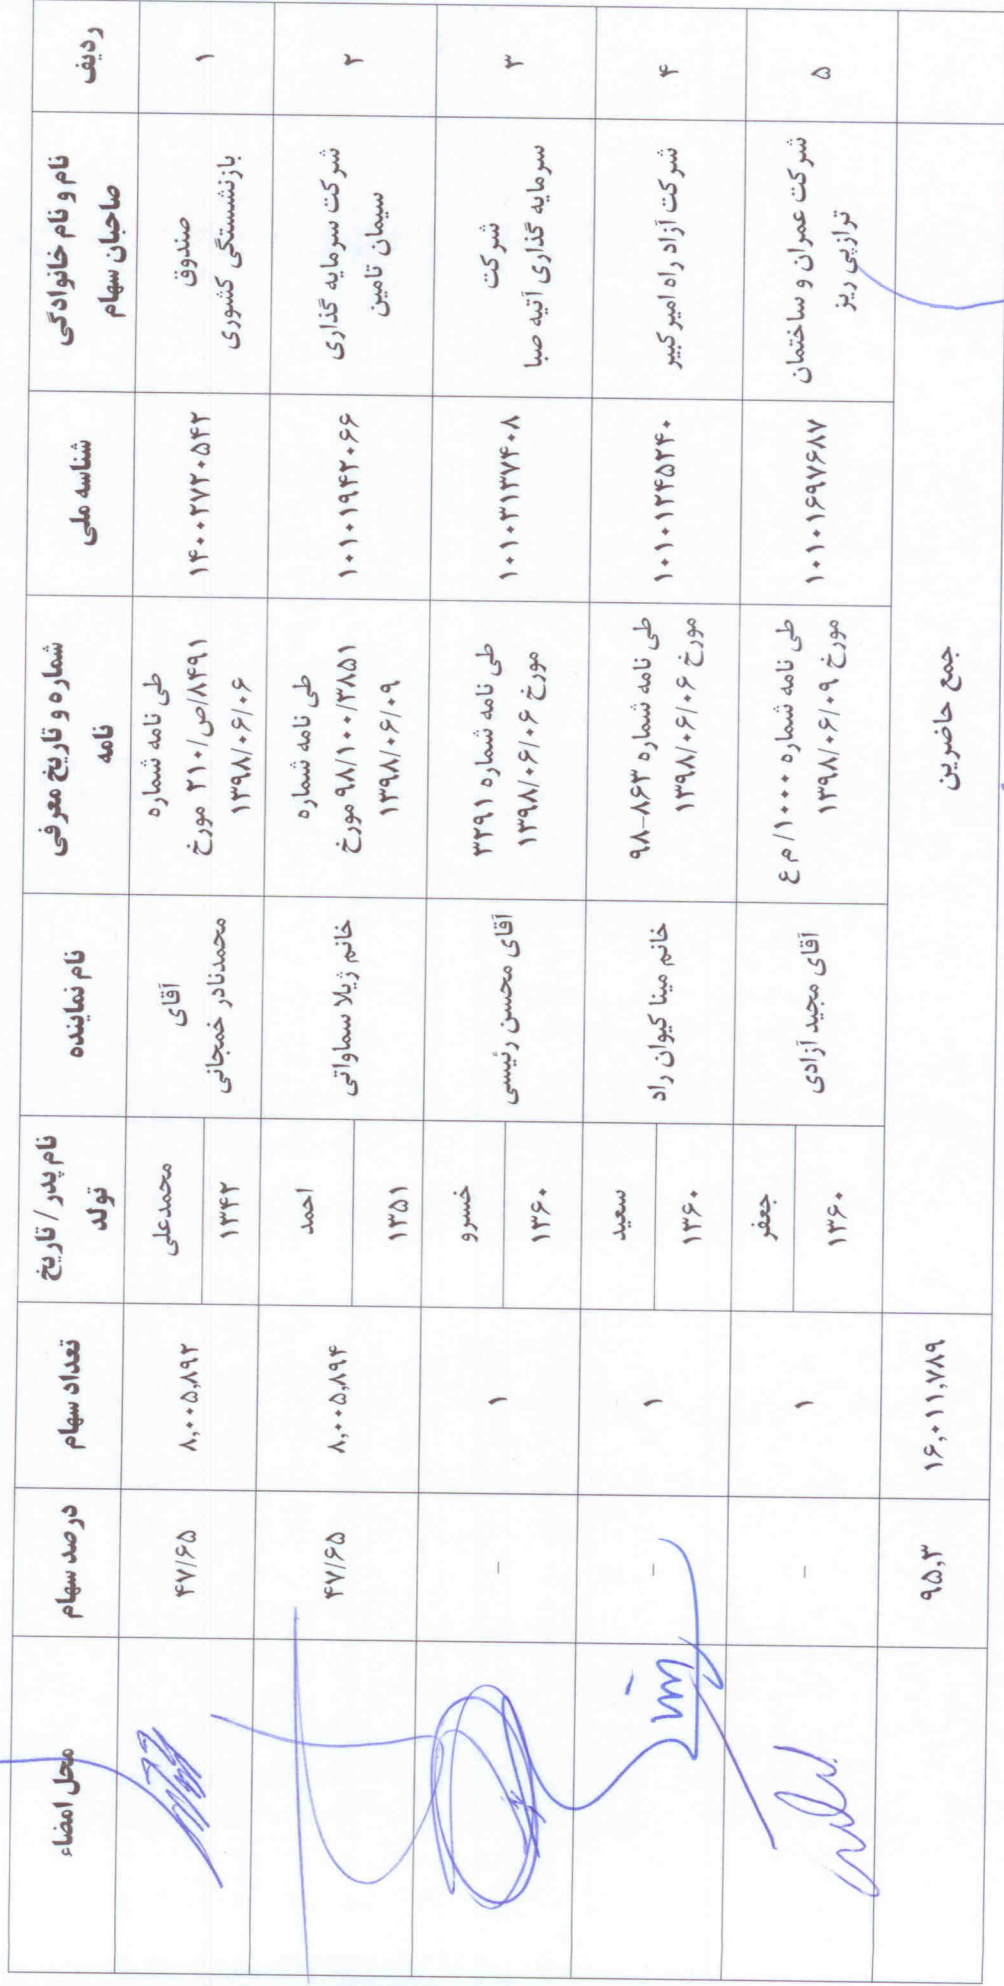 ردیف
نام و نام خانوادگی
صاحبان سهام
شناسه ملی
شماره و تاریخ معرفی
نامه
نام نماینده
نام پدر / تاریخ
تولد
تعداد سهام
درصد سهام
محل امضاء
۱
صندوق
بازنشستگی کشوری
۱۴۰۰۲۷۲۰۵۴۲
طی نامه شماره
۲۱۰/ص/۸۴۹۱ مورخ
۱۳۹۸/۰۶/۰۶
آقای
محمدنادر خمجانی
محمدعلی
۱۳۴۲
۸,۰۰۵,۸۹۲
۴۷/۶۵
۲
شرکت سرمایه گذاری
سیمان تامین
۱۰۱۰۰۱۹۴۲۰۶۶
طی نامه شماره
۹۸/۱۰۰/۳۸۵۱ مورخ
۱۳۹۸/۰۶/۰۹
خانم ژیلا سماواتی
احمد
۱۳۵۱
۸,۰۰۵,۸۹۴
۴۷/۶۵
۳
شرکت
سرمایه گذاری آتیه صبا
۱۰۱۰۳۱۳۷۴۰۸
طی نامه شماره ۳۲۹۱
مورخ ۱۳۹۸/۰۶/۰۶
آقای محسن رئیسی
خسرو
۱۳۶۰
۱
-
۴
شرکت آزاد راه امیر کبیر
۱۰۱۰۱۲۴۵۲۴۰
طی نامه شماره ۸۶۳-۹۸
مورخ ۱۳۹۸/۰۶/۰۶
خانم مینا کیوان راد
سعید
۱۳۶۰
۱
-
۵
شرکت عمران و ساختمان
ترازپی ریز
۱۰۱۰۱۶۹۷۶۸۷
طی نامه شماره ۱۰۰۰/ م ع
مورخ ۱۳۹۸/۰۶/۰۹
آقای مجید آزادی
جعفر
۱۳۶۰
۱
-
جمع حاضرین
۱۶,۰۱۱,۷۸۹
۹۵,۳